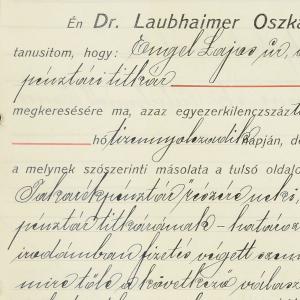 Én Dr. Laubhaimer Oszká
tanusitom, hogy: Engel Lajos úr, a
pénztári titkár
megkeresésére ma, azaz egyezerkilencszáz
hó tizennyolczadik napján, de
a melynek szószerinti másolata a tulsó oldalo
Takarékpénztár részére
pénztár titkárának - határoz
irodámban fizetés végett szem
mire tőle a következő válasz